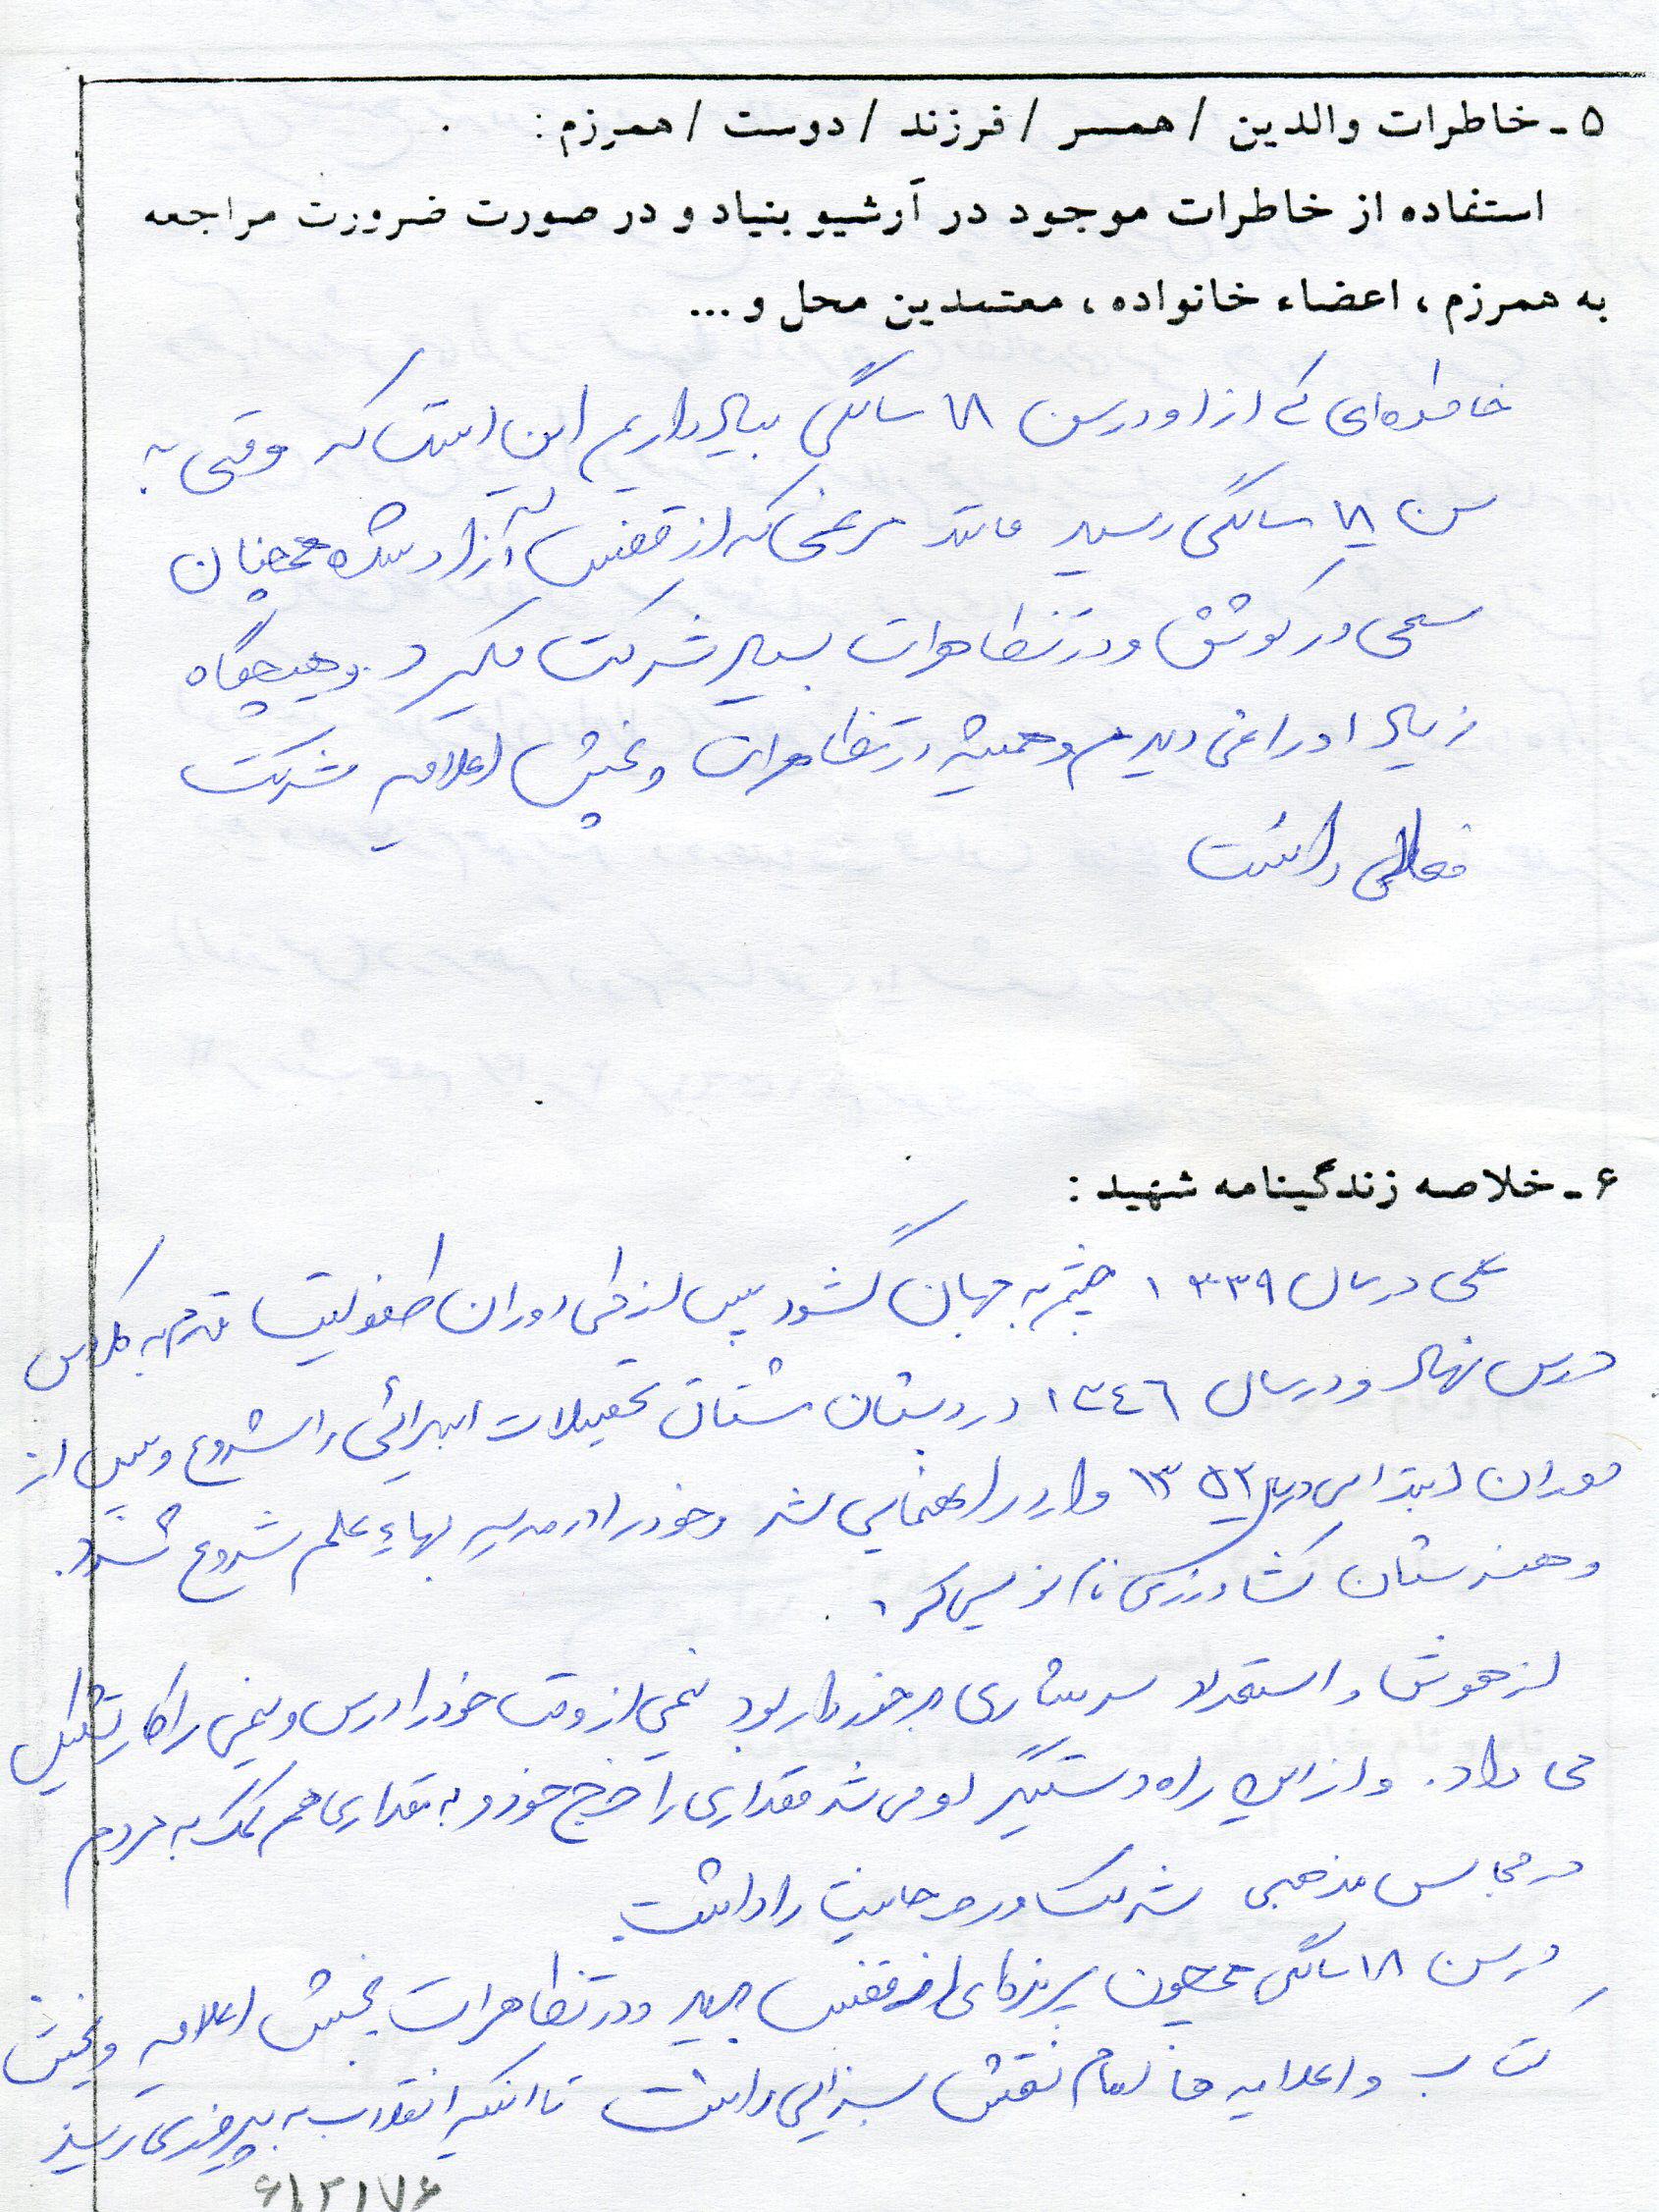 ۵ - خاطرات والدین / همسر / فرزند / دوست / همرزم :
استفاده از خاطرات موجود در آرشیو بنیاد و در صورت ضرورت مراجعه
به همرزم ، اعضاء خانواده ، معتمدین محل و ...
خاطره‌ای که از او در سن ۱۸ سالگی بیاد داریم این است که وقتی به
سن ۱۸ سالگی رسید مانند مرغی که از قفس آزاد شده همچنان
سعی در کوشش و در تظاهرات بسیار شرکت میکرد و هیچگاه
زیاد او را نمی دیدیم و همیشه در تظاهرات و پخش اعلامیه شرکت
فعالی داشت
۶ - خلاصه زندگینامه شهید :
علی در سال ۱۳۳۹ چشم به جهان گشود پس از طی دوران طفولیت قدم به کلاس
درس نهاد و در سال ۱۳٤٦ در دبستان تحصیلات ابتدائی را شروع و پس از
دوران ابتدایی در سال ۱۳۵۲ وارد راهنمایی شد و خود را در مدرسه بهاء علم شروع
و هنرستان کشاورزی نام نویسی کرد .
از هوش و استعداد سرشاری برخوردار بود نیمی از وقت خود را درس و نیمی را کار تشکیل
می داد . و از این راه دستگیر او می شد مقداری را خرج خود و به مقداری هم کمک به مردم
در مجالس مذهبی شرکت و در را داشت
در سن ۱۸ سالگی همچون پرنده‌ای از قفس پرید و در تظاهرات پخش اعلامیه و پخش
کتاب و اعلامیه های امام نقش بسزایی داشت تا اینکه انقلاب به پیروزی رسید
۶۱۲۱۷۶